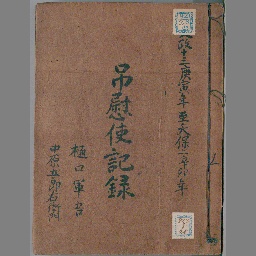 政十三庚寅年至天保二辛卯年
吊慰使記録
樋口軍吾
中根五郎右衛門